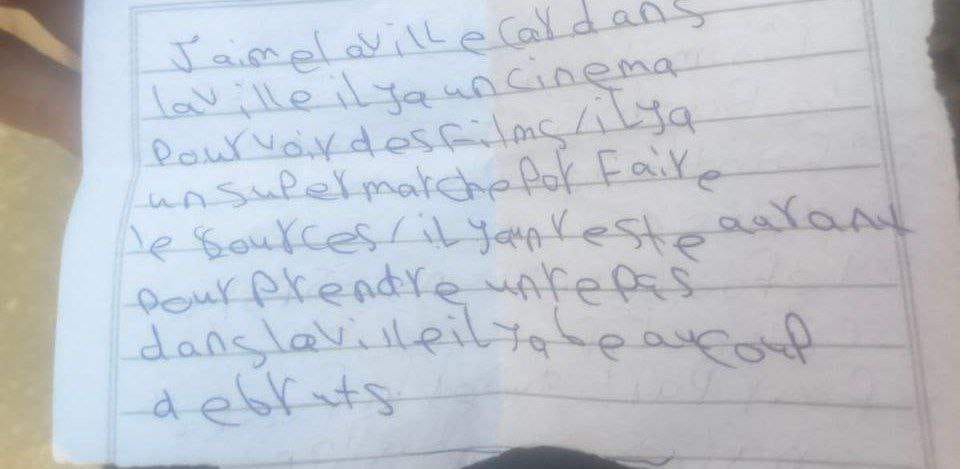 J'aime la ville car dans
la ville il ya un cinema
pour voir des films / il ya
un supermarche por faire
le sources / il ya un reste aarant
pour prendre un repas
dans la ville il ya beaucoup
de bruts